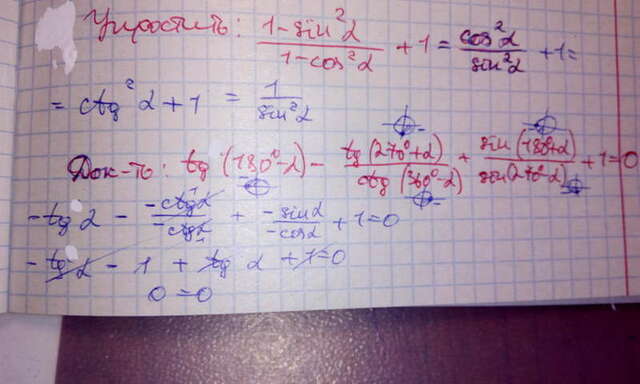 Упростить: (1-sin²α)/(1-cos²α) + 1 = cos²α/sin²α + 1 =
= ctg²α + 1 = 1/sin²α
Док-ть: tg(180°-α) - tg(270°+α)/ctg(360°-α) + sin(180°+α)/sin(270°-α) + 1 = 0
-tgα - (-ctgα)/(-ctgα) + (-sinα)/(-cosα) + 1 = 0
-tgα - 1 + tgα + 1 = 0
0 = 0